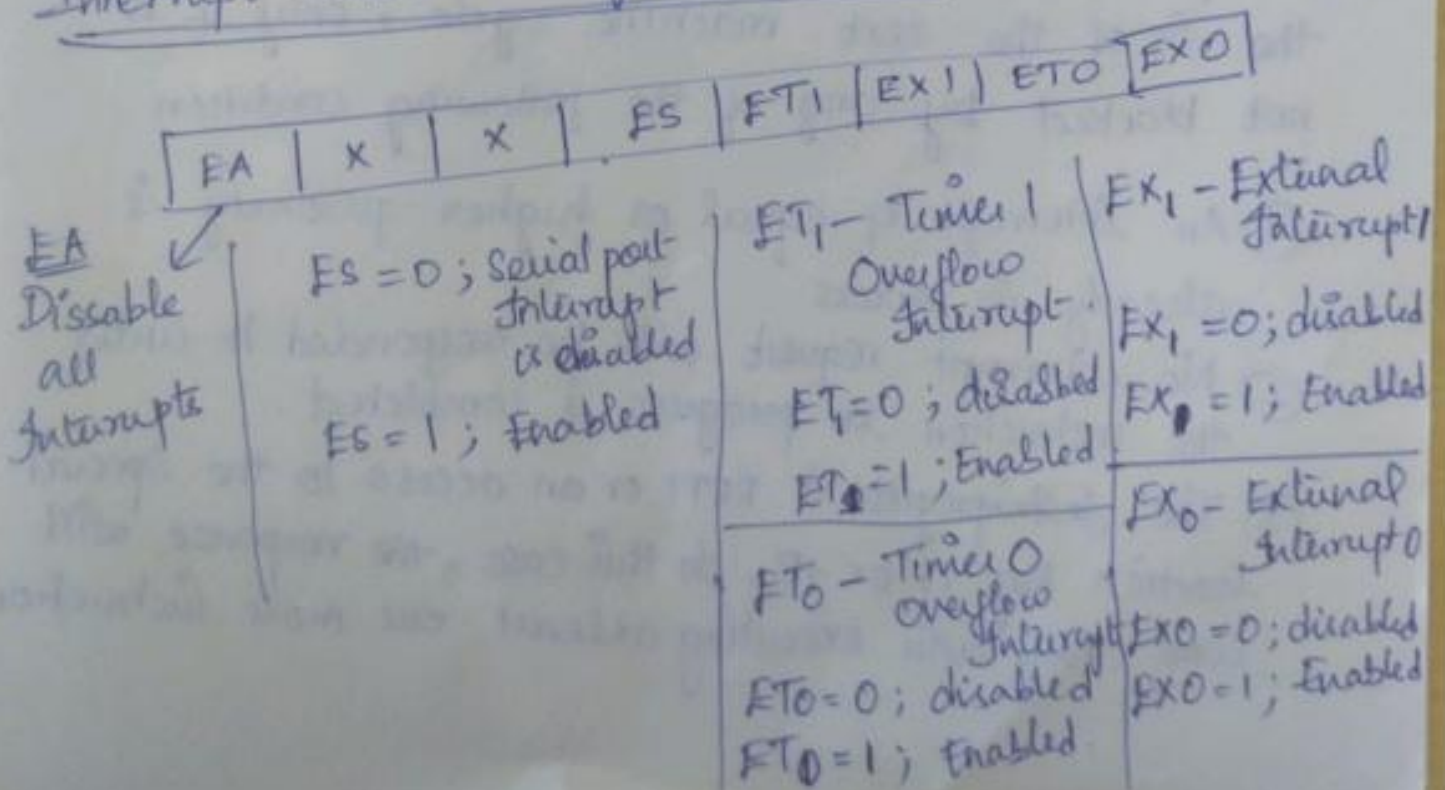 Interrupt
EA | X | X | ES | ET1 | EX1 | ET0 | EX0
EA
Dissable
all
Interrupts
ES = 0 ; Serial port
Interrupt
is disabled
ES = 1 ; Enabled
ET1 - Timer 1
Overflow
Interrupt.
ET1 = 0 ; disabled
ET1 = 1 ; Enabled
ET0 - Timer 0
overflow
Interrupt
ET0 = 0 ; disabled
ET0 = 1 ; Enabled
EX1 - External
Interrupt 1
EX1 = 0 ; disabled
EX1 = 1 ; Enabled
EX0 - External
Interrupt 0
EX0 = 0 ; disabled
EX0 = 1 ; Enabled